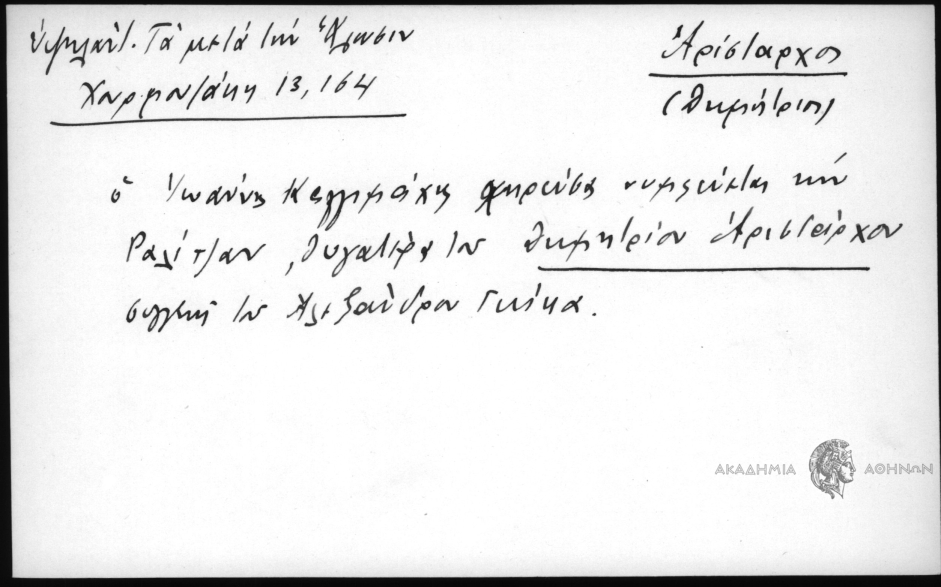 Ὑψηλάντ. Τὰ μετὰ τὴν Ἅλωσιν
Χουρμουζάκη 13, 164
Ἀρίσταρχος
(Δημήτριος)
ὁ Ἰωάννης Καλλιμάχης χηρεύσας νυμφεύεται τὴν
Ραλίτζαν, θυγατέρα τοῦ Δημητρίου Ἀριστάρχου
συγγενῆ τοῦ Ἀλεξάνδρου Γκίκα.
ΑΚΑΔΗΜΙΑ ΑΘΗΝΩΝ